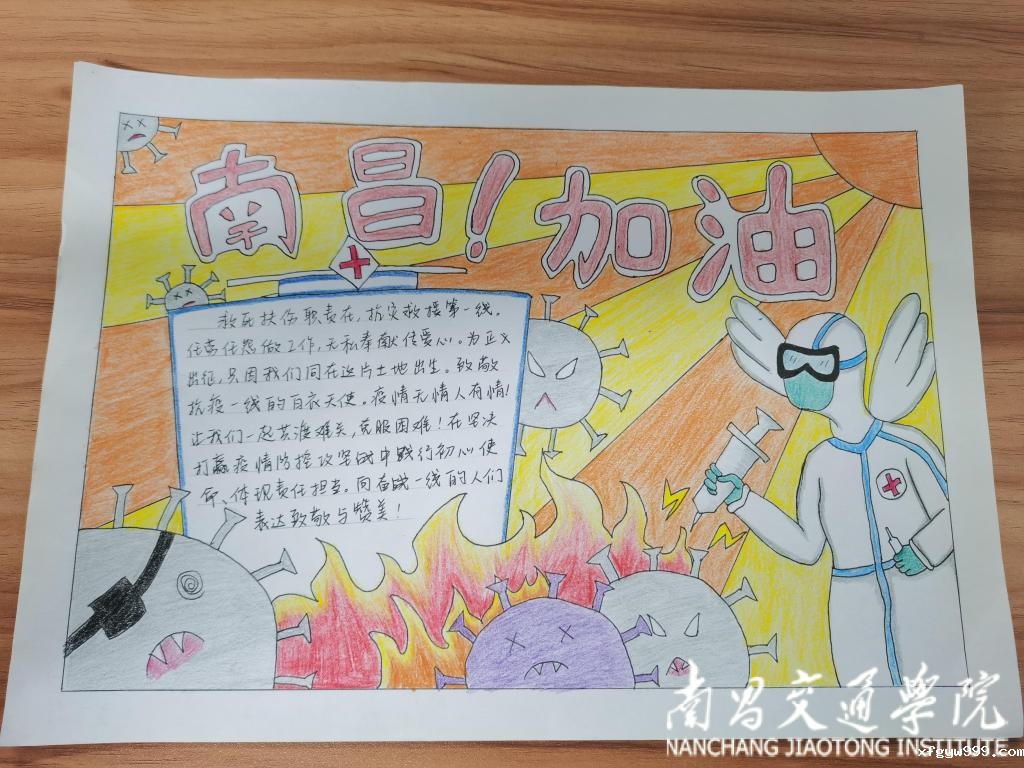 南昌！加油
救死扶伤职责在，抗灾救援第一线。
任劳任怨做工作，无私奉献传爱心。为正义
出征，只因我们同在这片土地出生。致敬
抗疫一线的白衣天使。疫情无情人有情！
让我们一起共渡难关，克服困难！在坚决
打赢疫情防控攻坚战中践行初心使
命、体现责任担当。向奋战一线的人们
表达致敬与赞美！
南昌交通學院
NANCHANG JIAOTONG INSTITUTE
xfgyw999.com